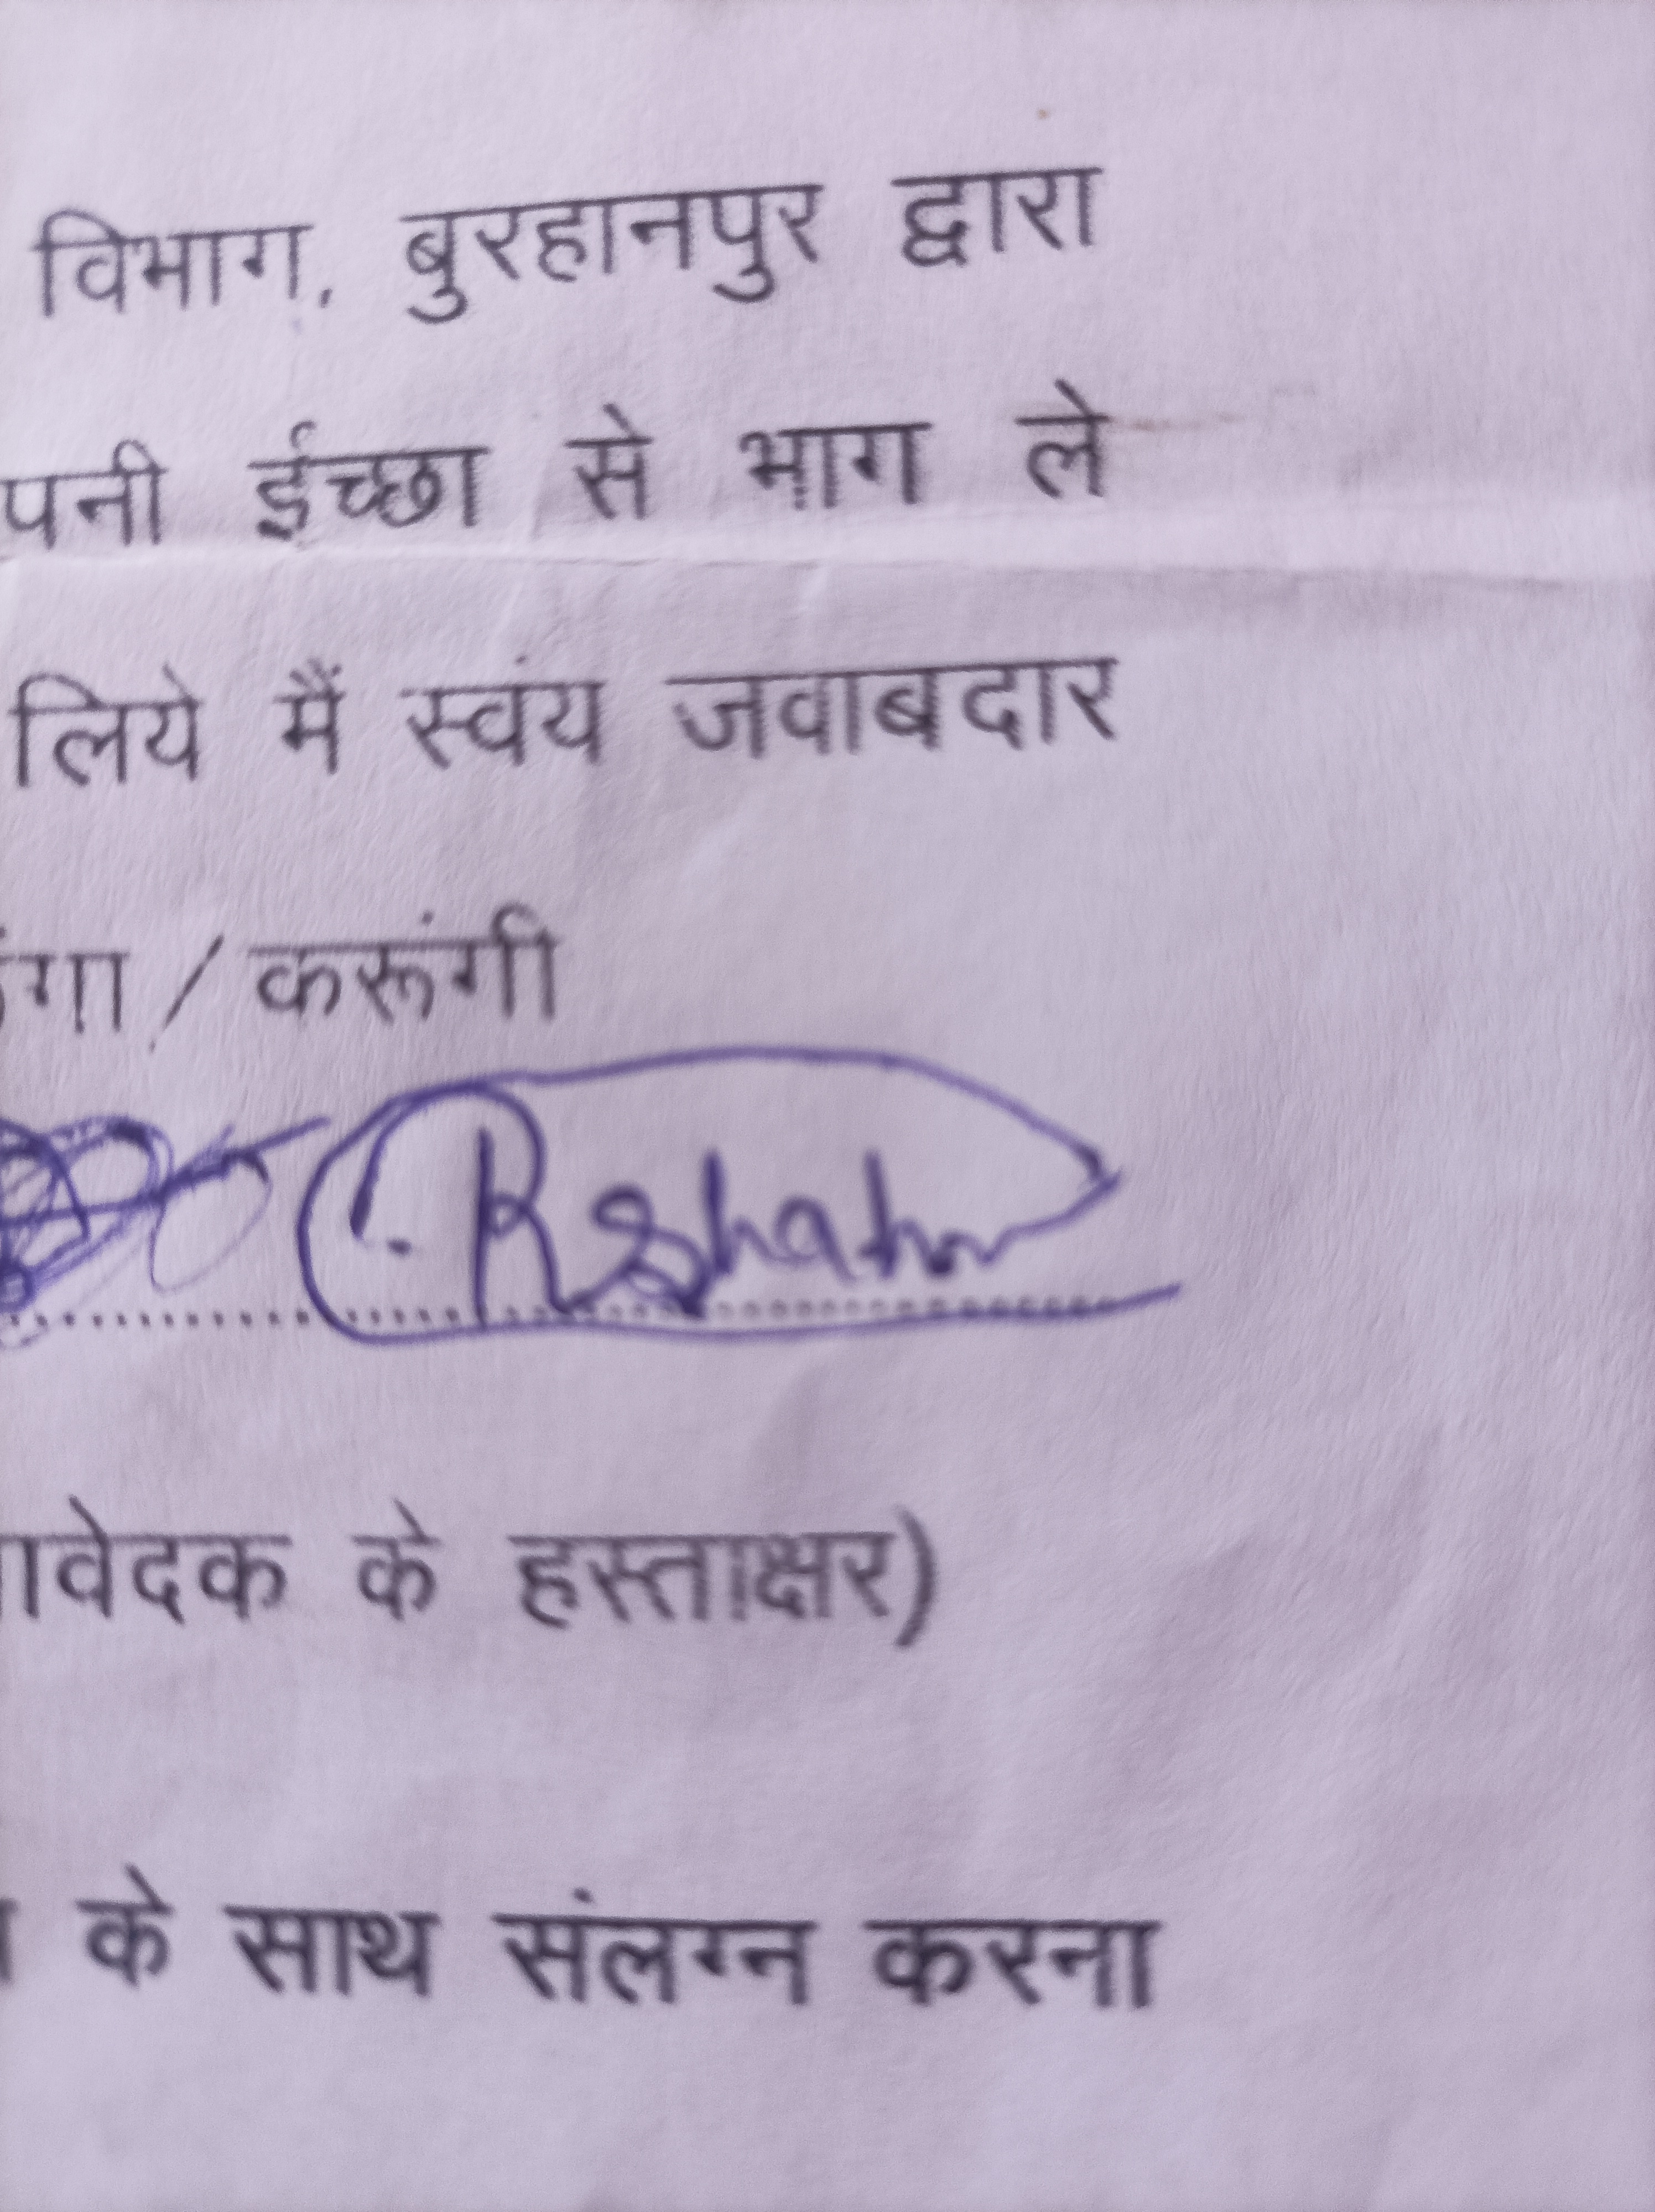 विभाग, बुरहानपुर द्वारा
पनी ईच्छा से भाग ले
लिये मैं स्वंय जवाबदार
ंगा / करूंगी
ावेदक के हस्ताक्षर)
के साथ संलग्न करना